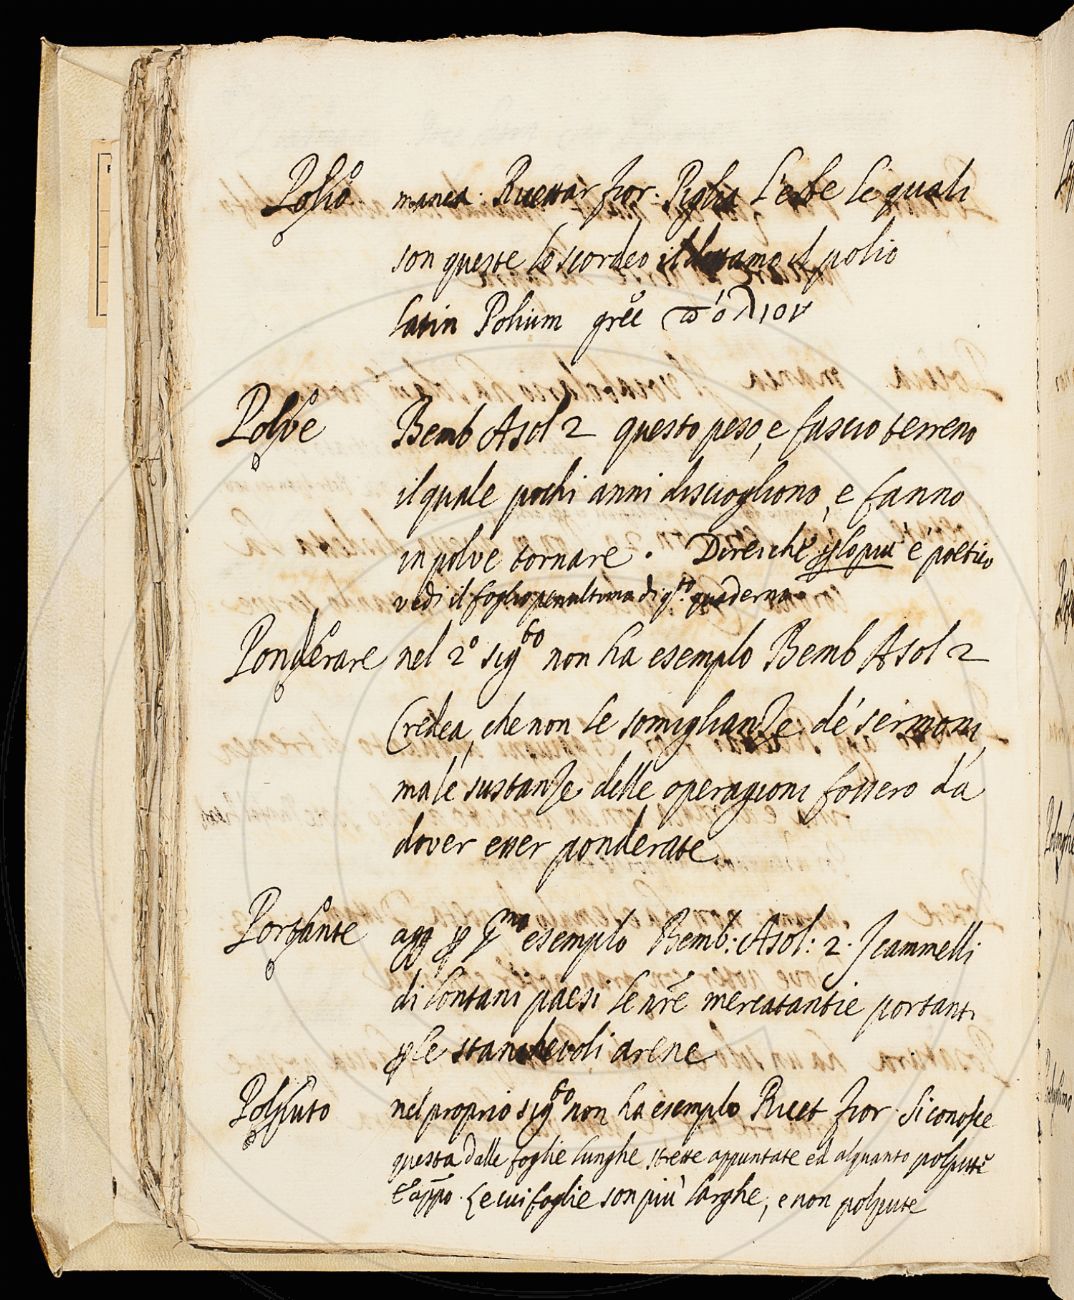 Polio manca. Ricettar fior. Piglia l'erbe le quali
son queste lo scordeo il dittamo il polio
latin Polium grec πόλιον
Polve Bemb Asol 2 questo peso, e fascio terreno
il quale pochi anni disciogliono, e fanno
in polve tornare. Direi che ꝑ lo piu' è poetico
vedi il foglio penultimo di qto quaderno
Ponderare nel 2° sigto non ha esemplo Bemb Asol 2
Credea, che non le somiglianze de' sermoni,
ma le sustanze delle operagioni fossero da
dover esser ponderate.
Portante agg ꝑ esemplo Bemb: Asol: 2. I cammelli
di lontani paesi le nr̃e mercatantie portanti
ꝑ le stanchevoli arene
Polputo nel proprio sigto non ha esemplo Ricet fior. Si conosce
questa dalle foglie lunghe strette appuntate ed alquanto polpute
E appo. Le cui foglie son più larghe, e non polpute